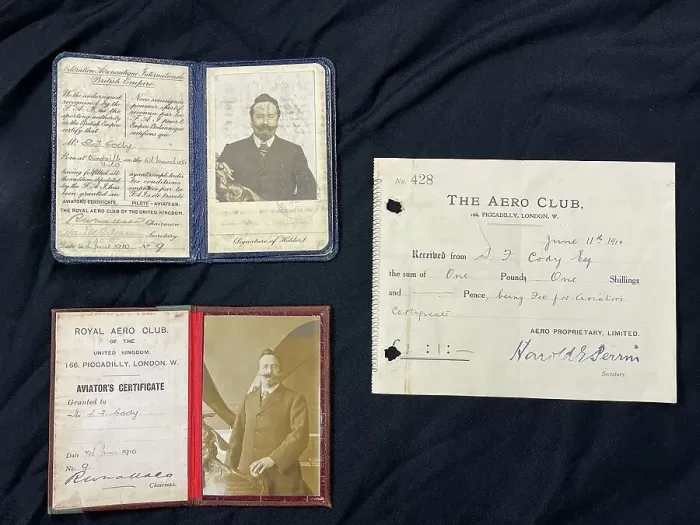 Fédération Aéronautique Internationale
British Empire
We the undersigned
recognised by the
F.A.I. as the
sporting authority
in the British Empire
certify that
Nous soussignés
pouvoir sportif
reconnu par la
F.A.I pour l'
Empire Britannique
certifions que
Mr S. F. Cody
Born at
on the 6th March 1861
having fulfilled all
the conditions stipulated
by the F.A.I. has
been granted an
ayant rempli toutes
les conditions
imposées par la
F.A.I. a été breveté
AVIATOR'S CERTIFICATE.
PILOTE-AVIATEUR.
THE ROYAL AERO CLUB OF THE UNITED KINGDOM.
Chairman
Secretary
Date 7th June 1910 No 9
(Signature of Holder)
ROYAL AERO CLUB
OF THE
UNITED KINGDOM
166, PICCADILLY, LONDON, W.
AVIATOR'S CERTIFICATE
Granted to
S. F. Cody
Date 7th June 1910
No. 9
Chairman.
No. 428
THE AERO CLUB.
166, PICCADILLY, LONDON, W.
June 11th 1910
Received from S F Cody Esq
the sum of One Pounds One Shillings
and — Pence, being Fee for Aviators
Certificate
AERO PROPRIETARY, LIMITED.
£1:1:-
Harold E Perrin
Secretary.